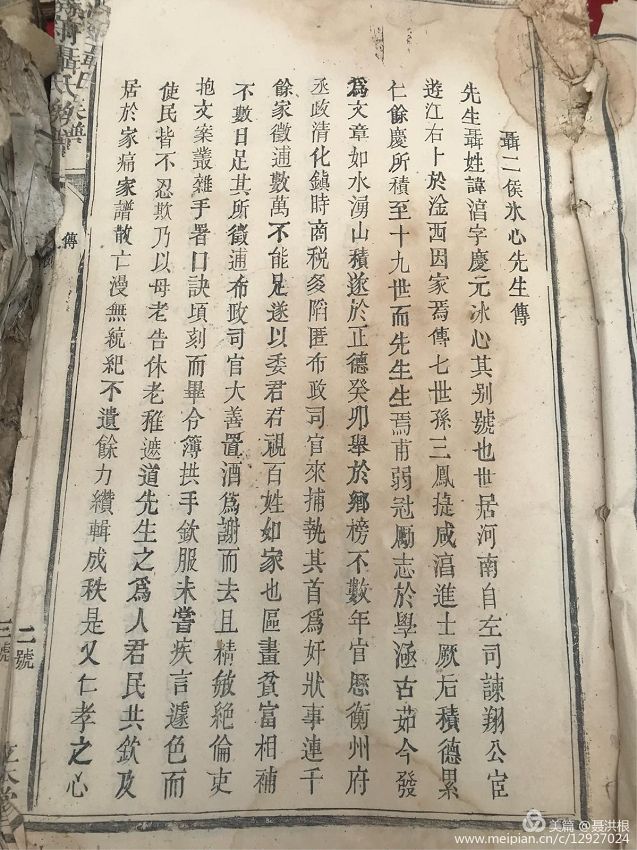 聶二侯氷心先生傳
先生聶姓諱滔字慶元冰心其别號也世居河南自左司諫翔公宦
遊江右卜於淦西因家焉傳七世孫三鳳㨗咸滔進士厥后積德累
仁餘慶所積至十九世而先生生焉甫弱冠勵志於學涵古茹今發
爲文章如水湧山積遂於正德癸卯舉於鄉榜不數年官歷衡州府
丞政清化鎮時商税多陷匿布政司官來捕執其首爲奸狀事連千
餘家徵逋數萬不能足遂以委君君視百姓如家也區畫貧富相補
不數日足其所徵逋布政司官大善置酒爲謝而去且精敏絶倫吏
抱文案叢雜手署口訣頃刻而畢令簿拱手欽服未嘗疾言遽色而
使民皆不忍欺乃以母老告休老稚遮道先生之爲人君民共欽及
居於家痛家譜散亡漫無統紀不遺餘力纘輯成秩是又仁孝之心
聶氏族譜
傳
二號
三號
美篇 @聂洪根
www.meipian.cn/c/12927024